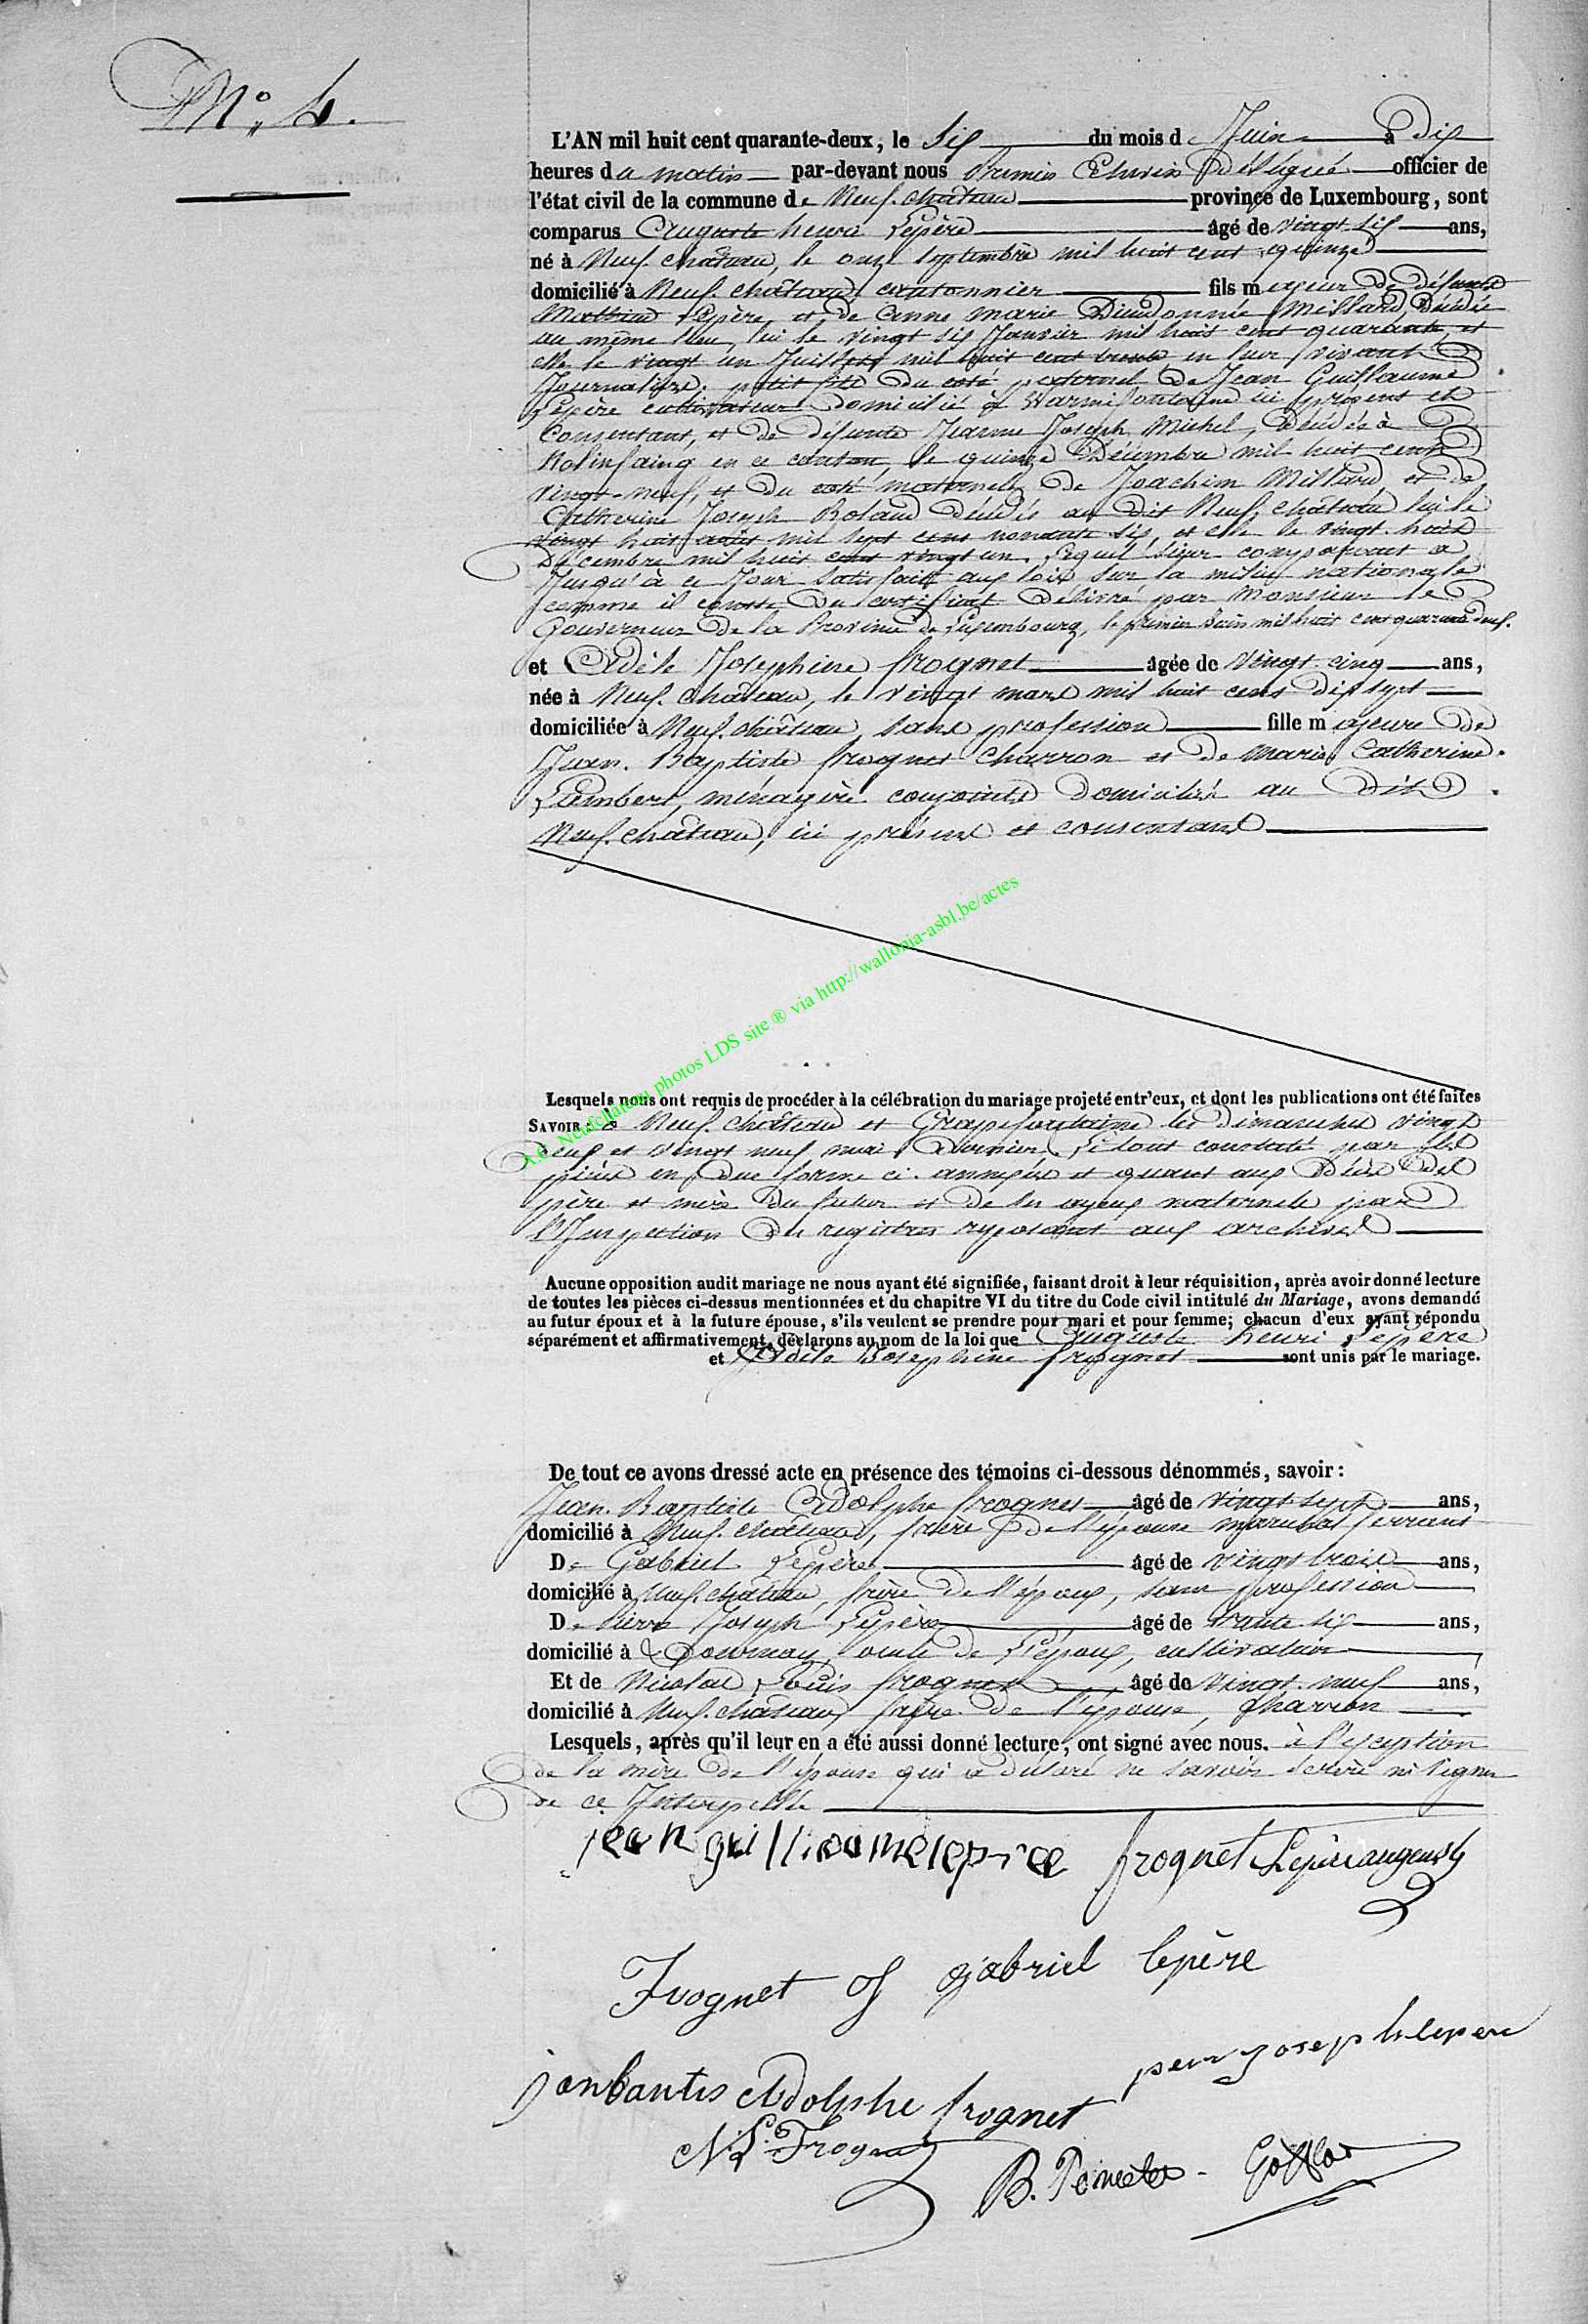 N° 4.
L'AN mil huit cent quarante-deux, le Six du mois de Juin à Dix
heures du matin par-devant nous Premier Echevin Délégué officier de
l'état civil de la commune de Neuf-château province de Luxembourg, sont
comparus Auguste henri Lepère âgé de vingt-six ans,
né à Neuf-château, le onze septembre mil huit cent quinze
domicilié à Neuf-château, cantonnier fils majeur de défunts
Mathieu Lepère, et de Anne marie Dieudonnée Millard, Décédés
au même lieu, lui le vingt six Janvier mil huit cent quarante, et
elle le vingt un Juillet mil huit cent trente en leur vivant
Journaliers, petit fils du coté paternel de Jean Guillaume
Lepère cultivateur domicilié à Warmifontaine ici présent et
Consentant, et de défunte Jeanne Joseph Michel, Décédée à
Molinfaing en ce canton, le quinze Décembre mil huit cent
vingt-neuf, et du coté maternel de Joachim Millard, et de
Catherine Joseph Roland Décédés au dit Neuf-château lui le
vingt huit août mil sept cent nonante six, et elle le vingt-huit
Décembre mil huit cent vingt un. Lequel sieur comparant a
Jusqu'à ce Jour satisfait aux lois sur la milice nationale
comme il conste du certificat délivré par Monsieur le
Gouverneur de la Province de Luxembourg, le premier Juin mil huit cent quarante deux.
et Adèle Josephine frognet âgée de vingt-cinq ans,
née à Neuf-château, le vingt mars mil huit cent dix sept
domiciliée à Neuf-château, sans profession fille majeure de
Jean-Baptiste frognet Charron et de Marie Catherine
Lambert, ménagère conjoints domiciliés au dit
Neuf-château, ici présens et consentans
Lesquels nous ont requis de procéder à la célébration du mariage projeté entr'eux, et dont les publications ont été faites
SAVOIR : à Neuf-château et Grapfontaine les dimanches vingt
deux et vingt neuf mai dernier. Le tout constaté par les
pièces en due forme ci-annexées et quant aux décès des
père et mère du futur et de ses ayeux maternels par
l'Inspection des registres reposant aux archives
Aucune opposition audit mariage ne nous ayant été signifiée, faisant droit à leur réquisition, après avoir donné lecture
de toutes les pièces ci-dessus mentionnées et du chapitre VI du titre du Code civil intitulé du Mariage, avons demandé
au futur époux et à la future épouse, s'ils veulent se prendre pour mari et pour femme; chacun d'eux ayant répondu
séparément et affirmativement, déclarons au nom de la loi que Auguste henri Lepère
et Adèle Josephine frognet sont unis par le mariage.
De tout ce avons dressé acte en présence des témoins ci-dessous dénommés, savoir :
Jean-Baptiste Adolphe frognet âgé de vingt-sept ans,
domicilié à Neuf-château, frère de l'épouse maréchal ferrant
De Gabriel Lepère âgé de vingt trois ans,
domicilié à Neuf-château, frère de l'époux, sans profession
De Pierre Joseph Lepère âgé de trente six ans,
domicilié à Tournay, oncle de l'époux, cultivateur
Et de Nicolas Louis frognet âgé de vingt-neuf ans,
domicilié à Neuf-château, frère de l'épouse, charron
Lesquels, après qu'il leur en a été aussi donné lecture, ont signé avec nous. à l'exception
de la mère de l'épouse qui a déclaré ne savoir écrire ni signer
de ce Interpellée
jean guilliaume lepree frognet Lepère auguste
Frognet of gabriel lepère
peir joseph lepere
janbautis Adolphe frognet
N. L. Frognet
B. Poncelet Goffar
A.C. Neufchâteau photos LDS site ® via http://wallonia-asbl.be/actes